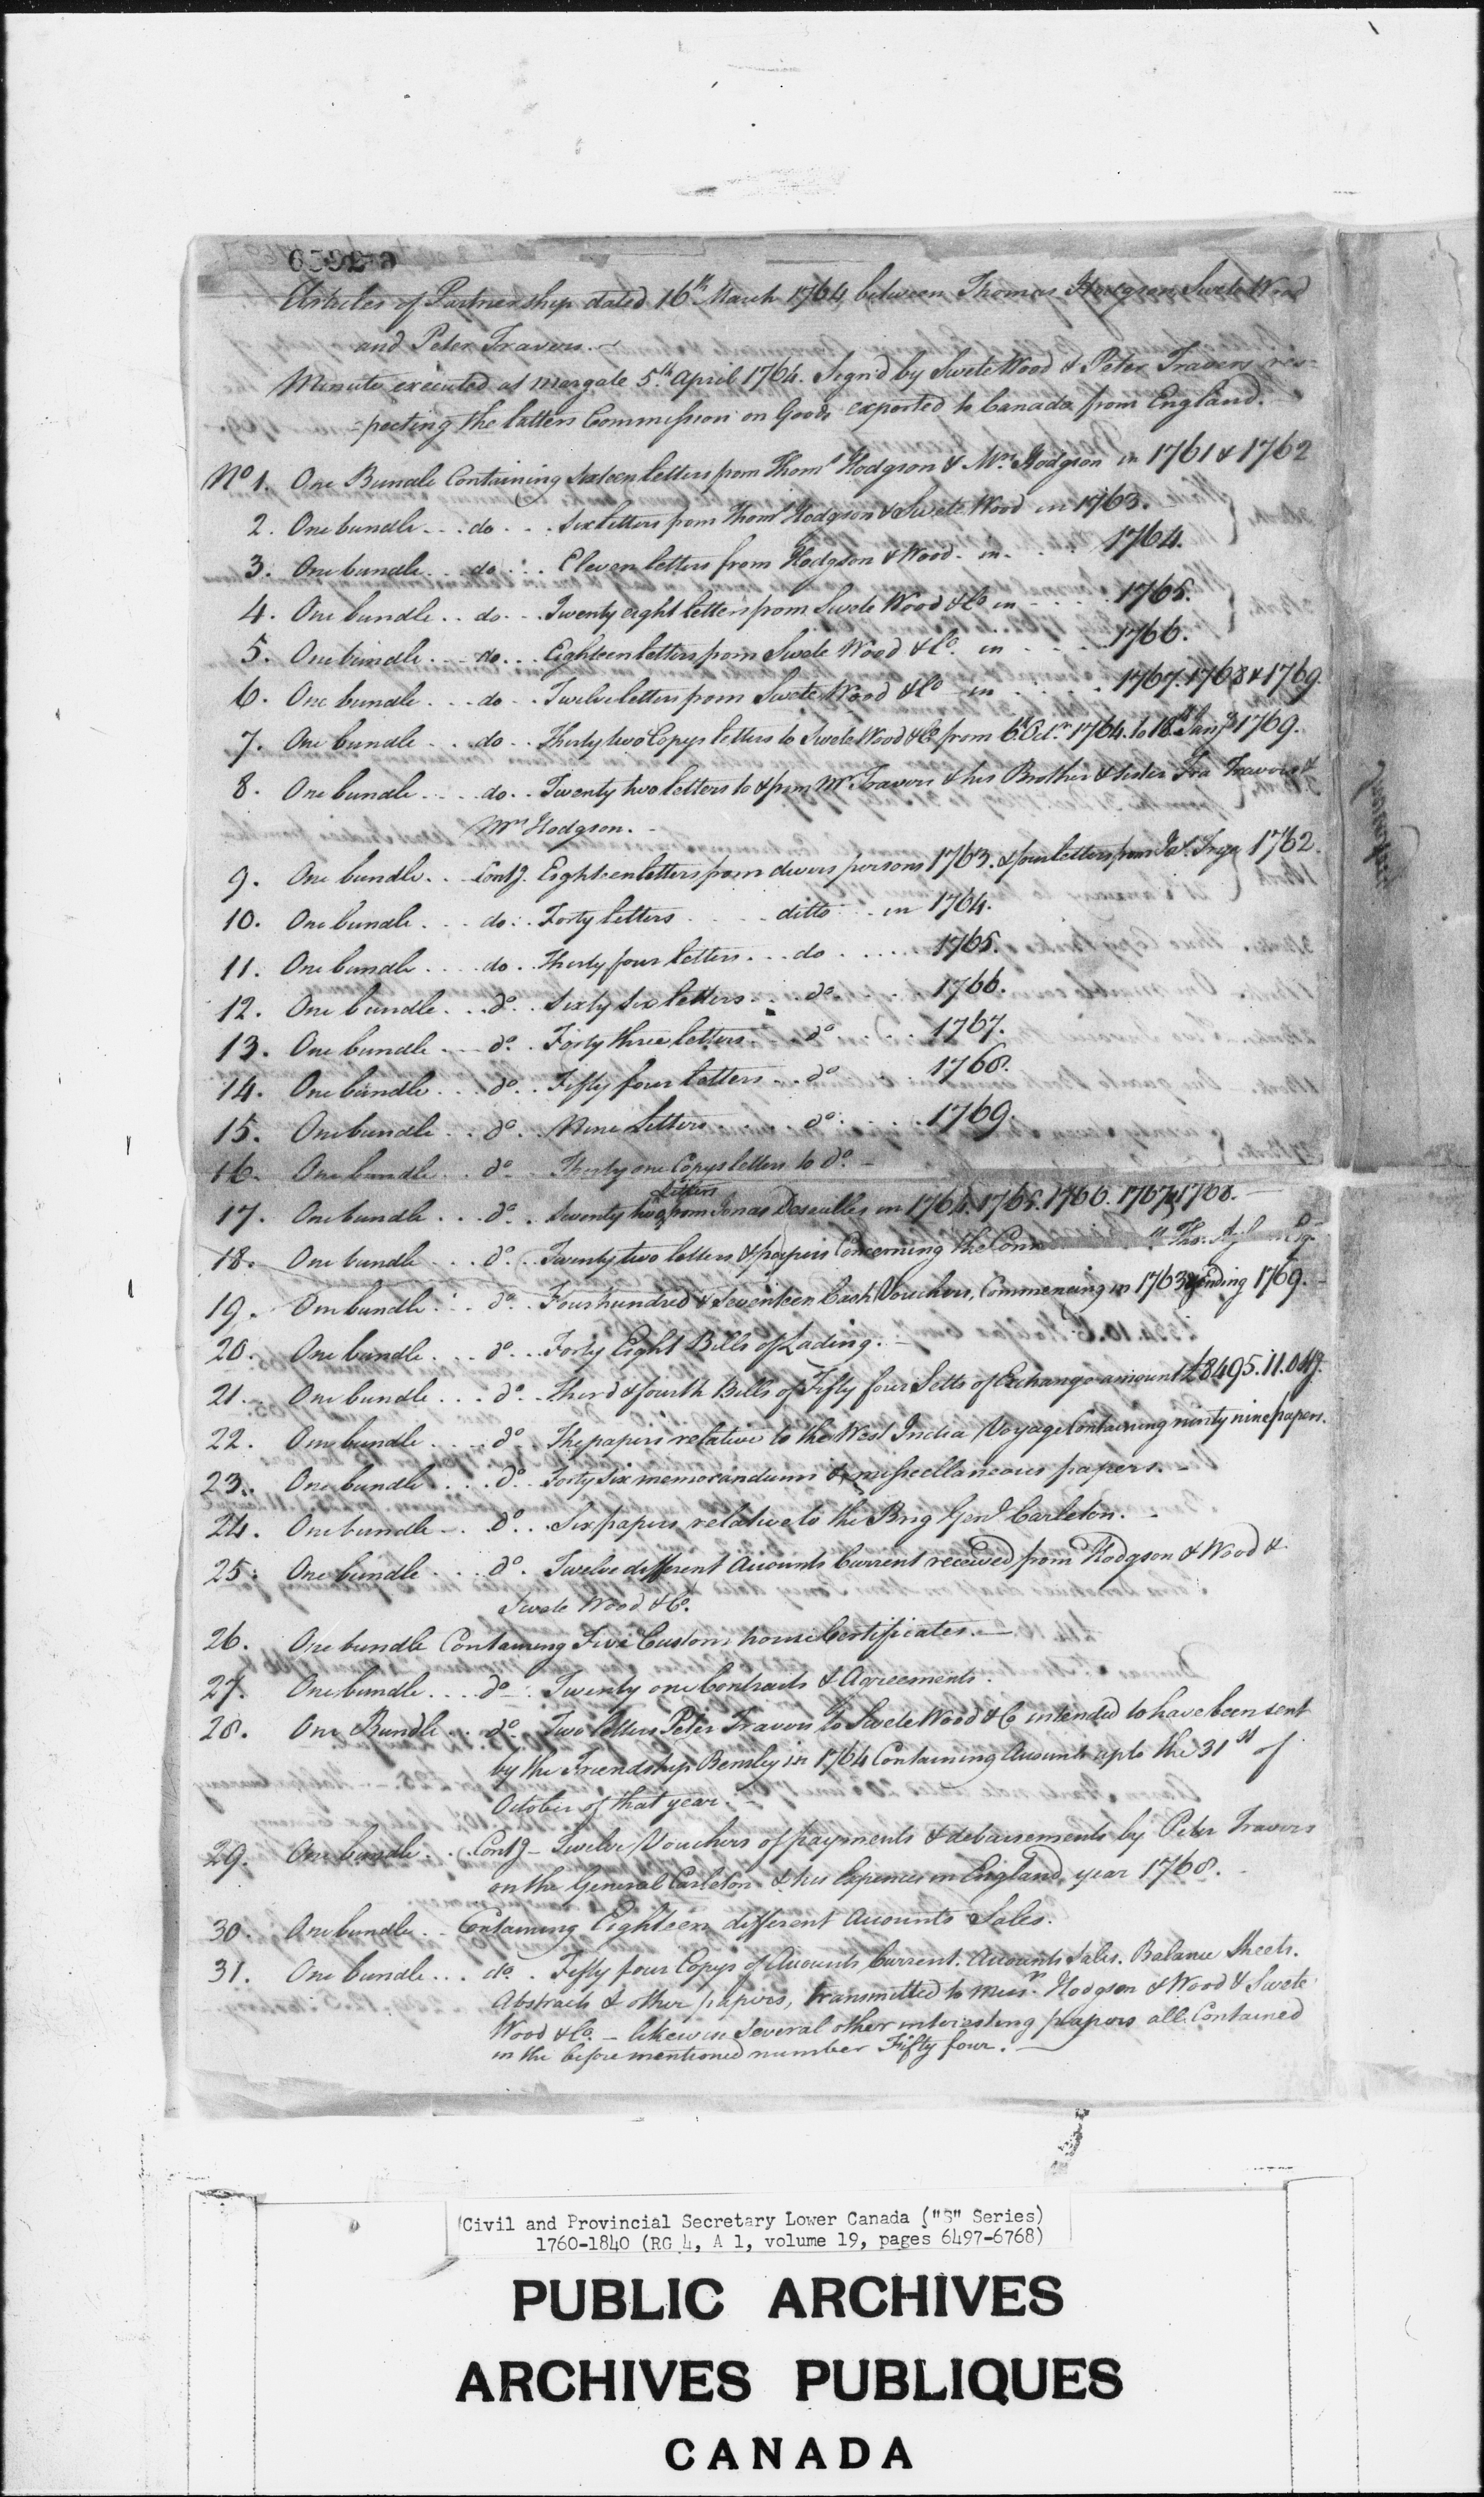 Articles of Partnership dated 16th March 1764, between Thomas Hodgson, Swete Wood
and Peter Travers.
Minute executed at margate 5th April 1764. Sign'd by Swete Wood & Peter Travers res=
=pecting the latters Commission on Goods exported to Canada from England.
No 1. One Bundle Containing Sixteen letters from Thoms Hodgson & Mrs Hodgson in 1761 & 1762
2. One bundle - - do - - Six letters from Thoms Hodgson & Swete Wood in 1763.
3. One bundle - - do - - Eleven letters from Hodgson & Wood - in - - - 1764.
4. One bundle - - do - - Twenty eight letters from Swete Wood & Co in - - - 1765.
5. One bundle - - do - - Eighteen letters from Swete Wood & Co. in - - - 1766.
6. One bundle - - do - - Twelve letters from Swete Wood & Co in - - - 1767. 1768 & 1769.
7. One bundle - - do - - Thirty two Copys letters to Swete Wood & Co from 6th Octr 1764. to 18th Jany 1769.
8. One bundle - - do - - Twenty two letters to & from Mr Travers & his Brother & sister Fra Travers &
Mrs Hodgson. -
9. One bundle - - Contg. Eighteen letters from divers persons 1763. & four letters from 1762.
10. One bundle - - do - - Forty letters - - - ditto - - in 1764.
11. One bundle - - do - - Thirty four letters - - do - - - 1765.
12. One bundle - - do - - Sixty six letters - - do - - - 1766.
13. One bundle - - do - - Forty three letters - - do - - - 1767.
14. One bundle - - do - - Fifty four letters - - do - - - 1768.
15. One bundle - - do - - Nine Letters - - - do - - - 1769.
16. One bundle - - do - - Thirty one Copys letters to do. -
17. One bundle - - do - - Seventy two letters from Jonas Desaulles in 1764. 1765. 1766. 1767 & 1768. -
18. One bundle - - do - - Twenty two letters & papers Concerning the
19. One bundle - - do - - Four hundred & Seventeen Cash Vouchers, Commencing in 1763 & Ending 1769. -
20. One bundle - - do - - Forty Eight Bills of Lading. -
21. One bundle - - do - - Third & fourth Bills of Fifty four Setts of Exchange amount £8495.11.0 Stg.
22. One bundle - - do - - The papers relative to the West India Voyage Containing ninty nine papers.
23. One bundle - - do - - Forty Six memorandums & miscellaneous papers. -
24. One bundle - - do - - Six papers relative to the Brig Genl Carleton. -
25. One bundle - - do - - Twelve different Accounts Current received from Hodgson & Wood &
Swete Wood & Co.
26. One bundle Containing Five Custom house Certificates. -
27. One bundle - - do - - Twenty one Contracts & Agreements.
28. One Bundle - - do - - Two letters Peter Travers to Swete Wood & Co intended to have been sent
by the Friendship Bensley in 1764 Containing Accounts up to the 31st of
October of that year. -
29. One bundle - - Contg - Twelve Vouchers of payments & debursements by Peter Travers
on the General Carleton & his Expences in England, year 1768. -
30. One bundle - - Containing Eighteen different Accounts Sales.
31. One bundle - - do - - Fifty four Copys of Accounts Current. Accounts Sales. Balance Sheets.
Abstracts & other papers, transmitted to Messrs Hodgson & Wood & Swete
Wood & Co. - likewise Several other interesting papers all Contained
in the before mentioned number Fifty four. -
Civil and Provincial Secretary Lower Canada ("S" Series)
1760-1840 (RG 4, A 1, volume 19, pages 6497-6768)
PUBLIC ARCHIVES
ARCHIVES PUBLIQUES
CANADA